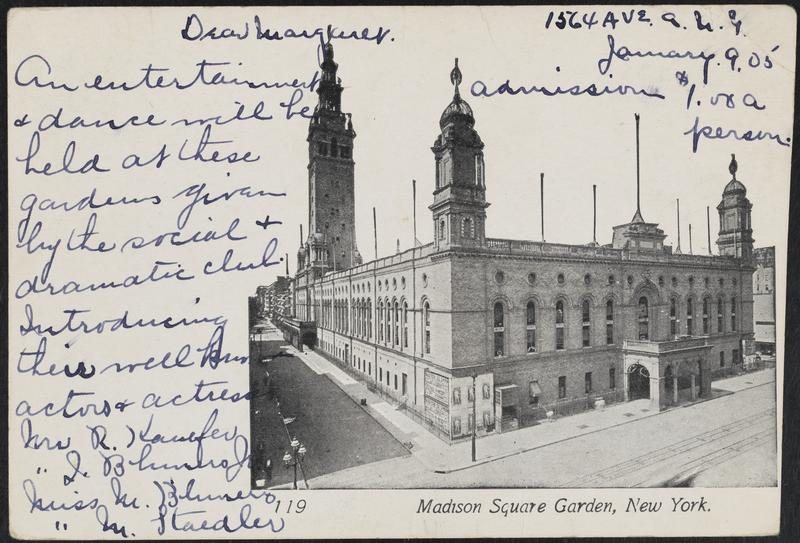 1564 AVE. A. N.Y.
January. 9. 05
Dear Margaret.
An entertainment
& dance will be
held at these
gardens given
by the social &
dramatic club.
Introducing
their well known
actors & actress
Mrs R. Kaufer
" J. Blumers Jr
Miss M. Blumers
" M. Staedler
admission $1.00 a
person.
119
Madison Square Garden, New York.